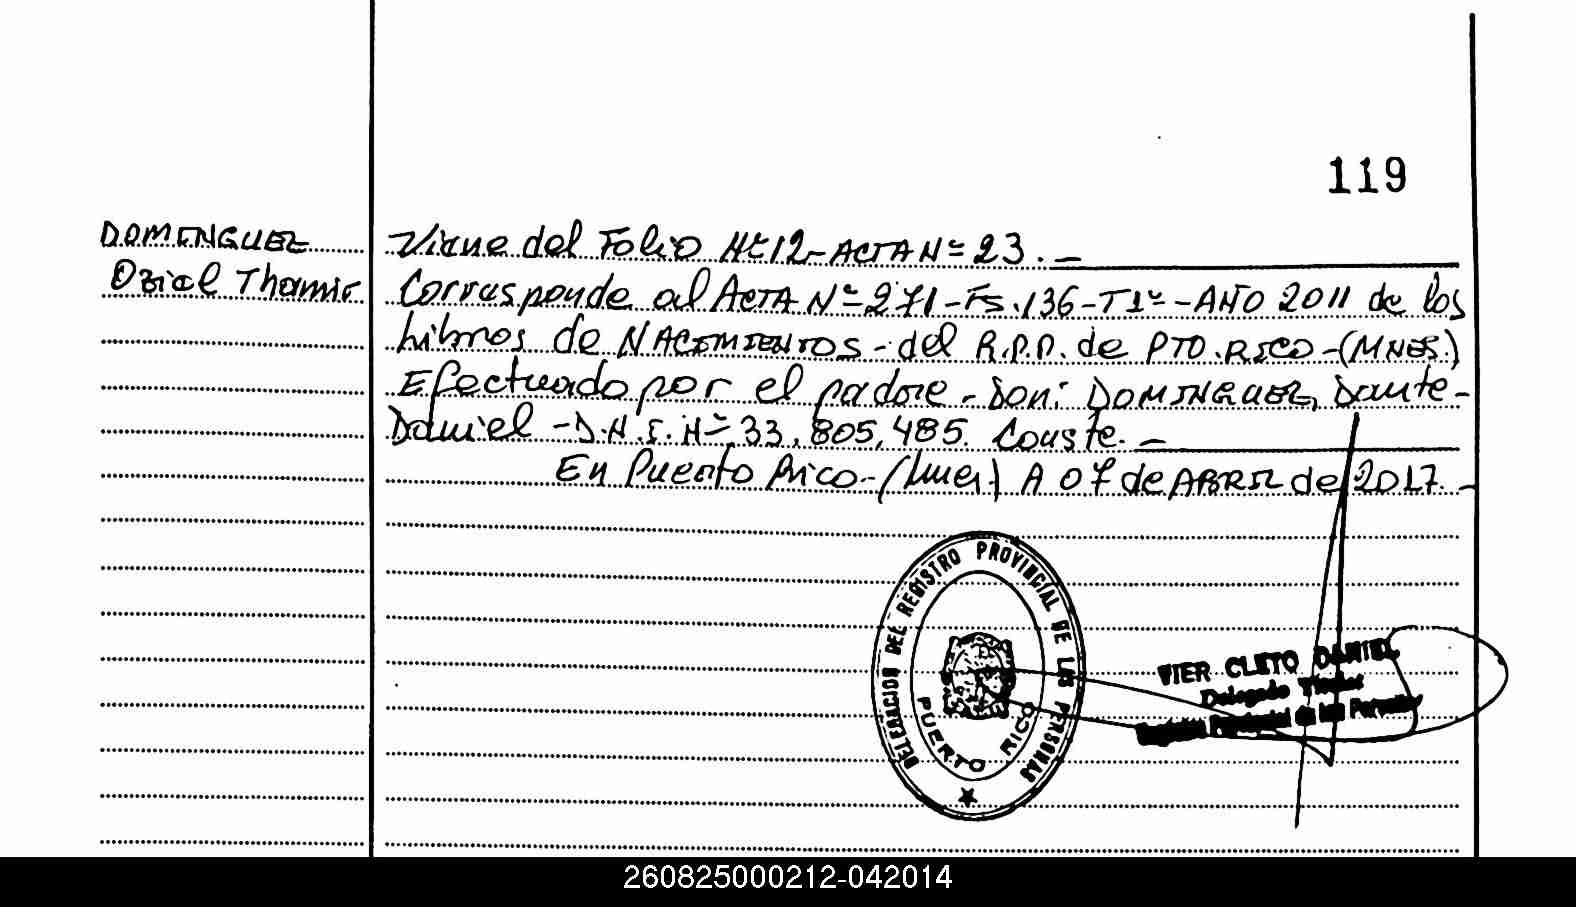 119
DOMINGUEZ
Oziel Thamir
Viene del Folio Nº 12 - ACTA Nº 23. -
Corresponde al ACTA Nº 271 - Fs. 136 - T 1º - AÑO 2011 de los
libros de NACIMIENTOS - del R.P.P. de PTO. RICO - (MNES.)
Efectuado por el padre - Don: DOMINGUEZ, Dante -
Daniel - D.N.I. Nº 33.805.485. Conste. -
En Puerto Rico - (Mnes) A 07 de ABRIL de 2017. -
DELEGACION DEL REGISTRO PROVINCIAL DE LAS PERSONAS
PUERTO RICO
CLETO DANIEL
Delegado Titular
Registro Provincial de las Personas
260825000212-042014